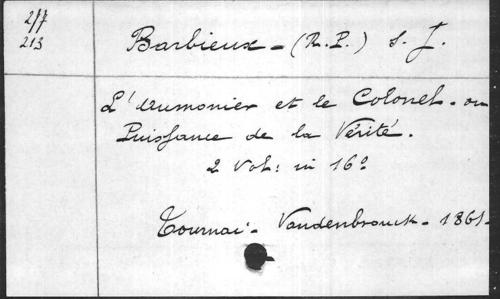 277
213
Barbieux - (R. P.) s. J.
L'aumonier et le Colonel - ou
Puissance de la Vérité.
2 vol: in 16°
Tournai - Vandenbrouck - 1861 -